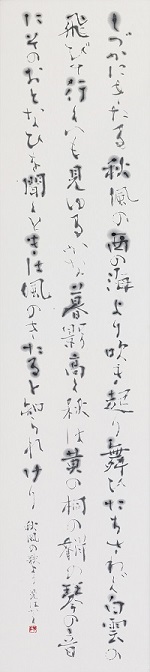 しづかにきたる秋風の西の海より吹き起り舞ひたちさわぐ白雲の
飛びて行くへも見ゆるかな暮影高く秋は黄の桐の梢の琴の音
にそのおとなひを聞くときは風のきたると知られけり
秋風の歌より